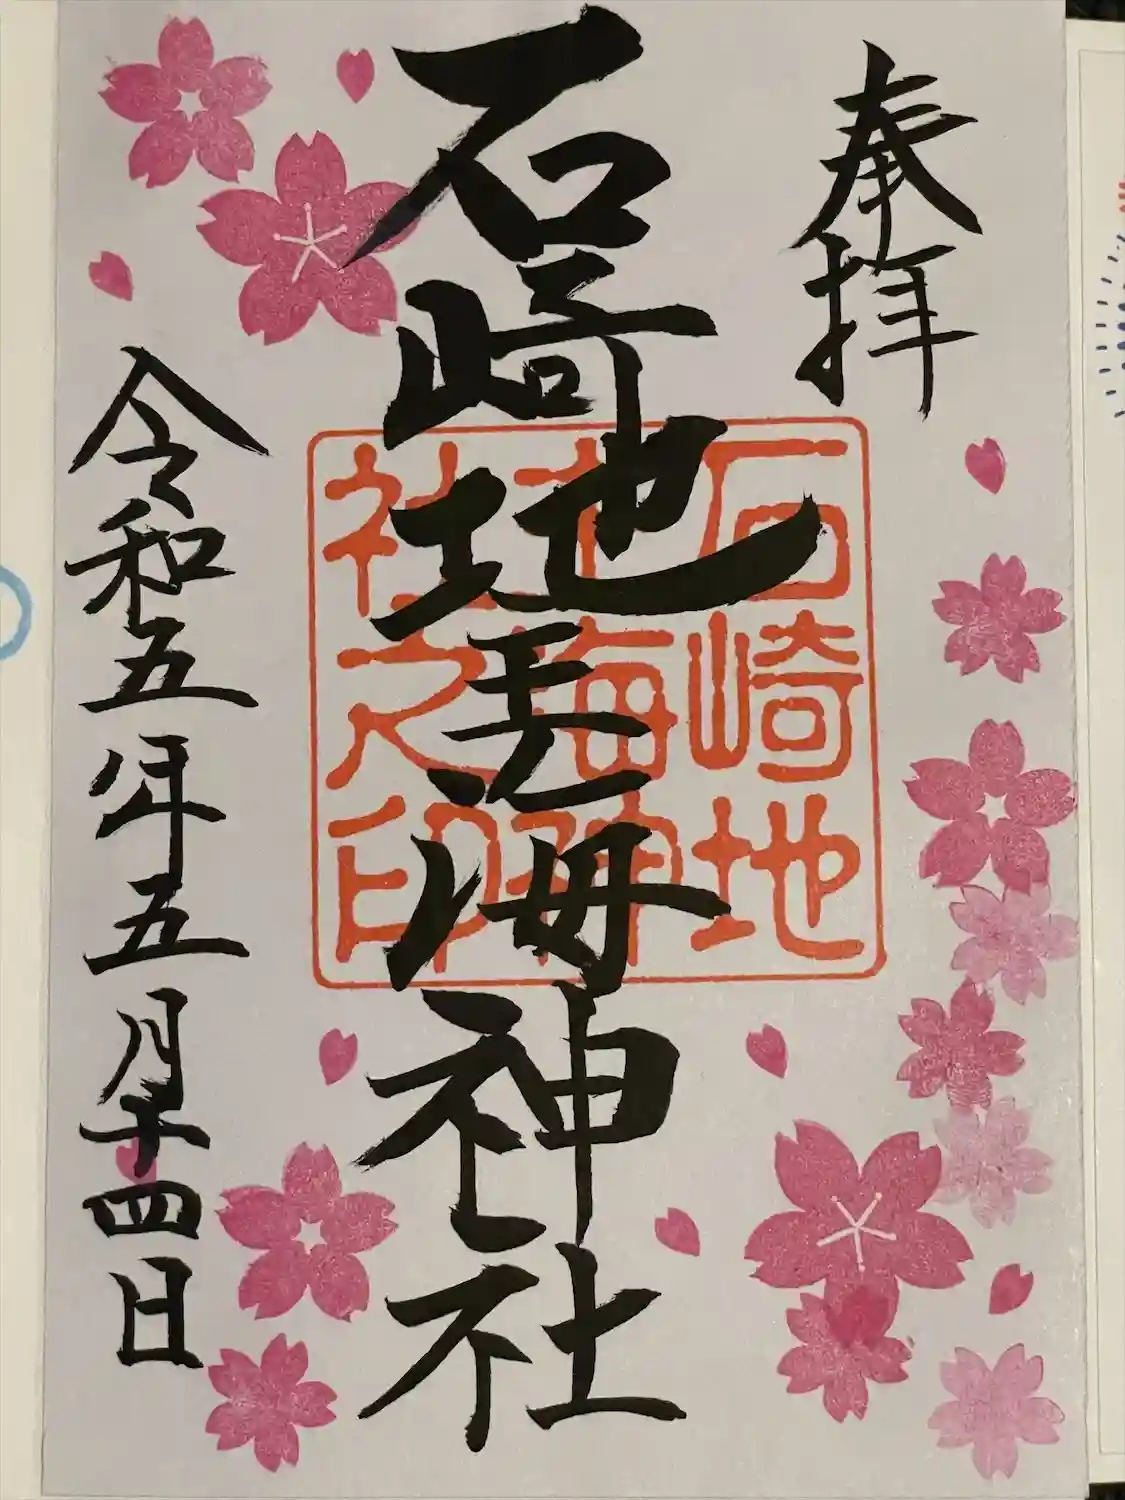 奉拝
石崎地主海神社
石崎地
主海神
社之印
令和五年五月十四日